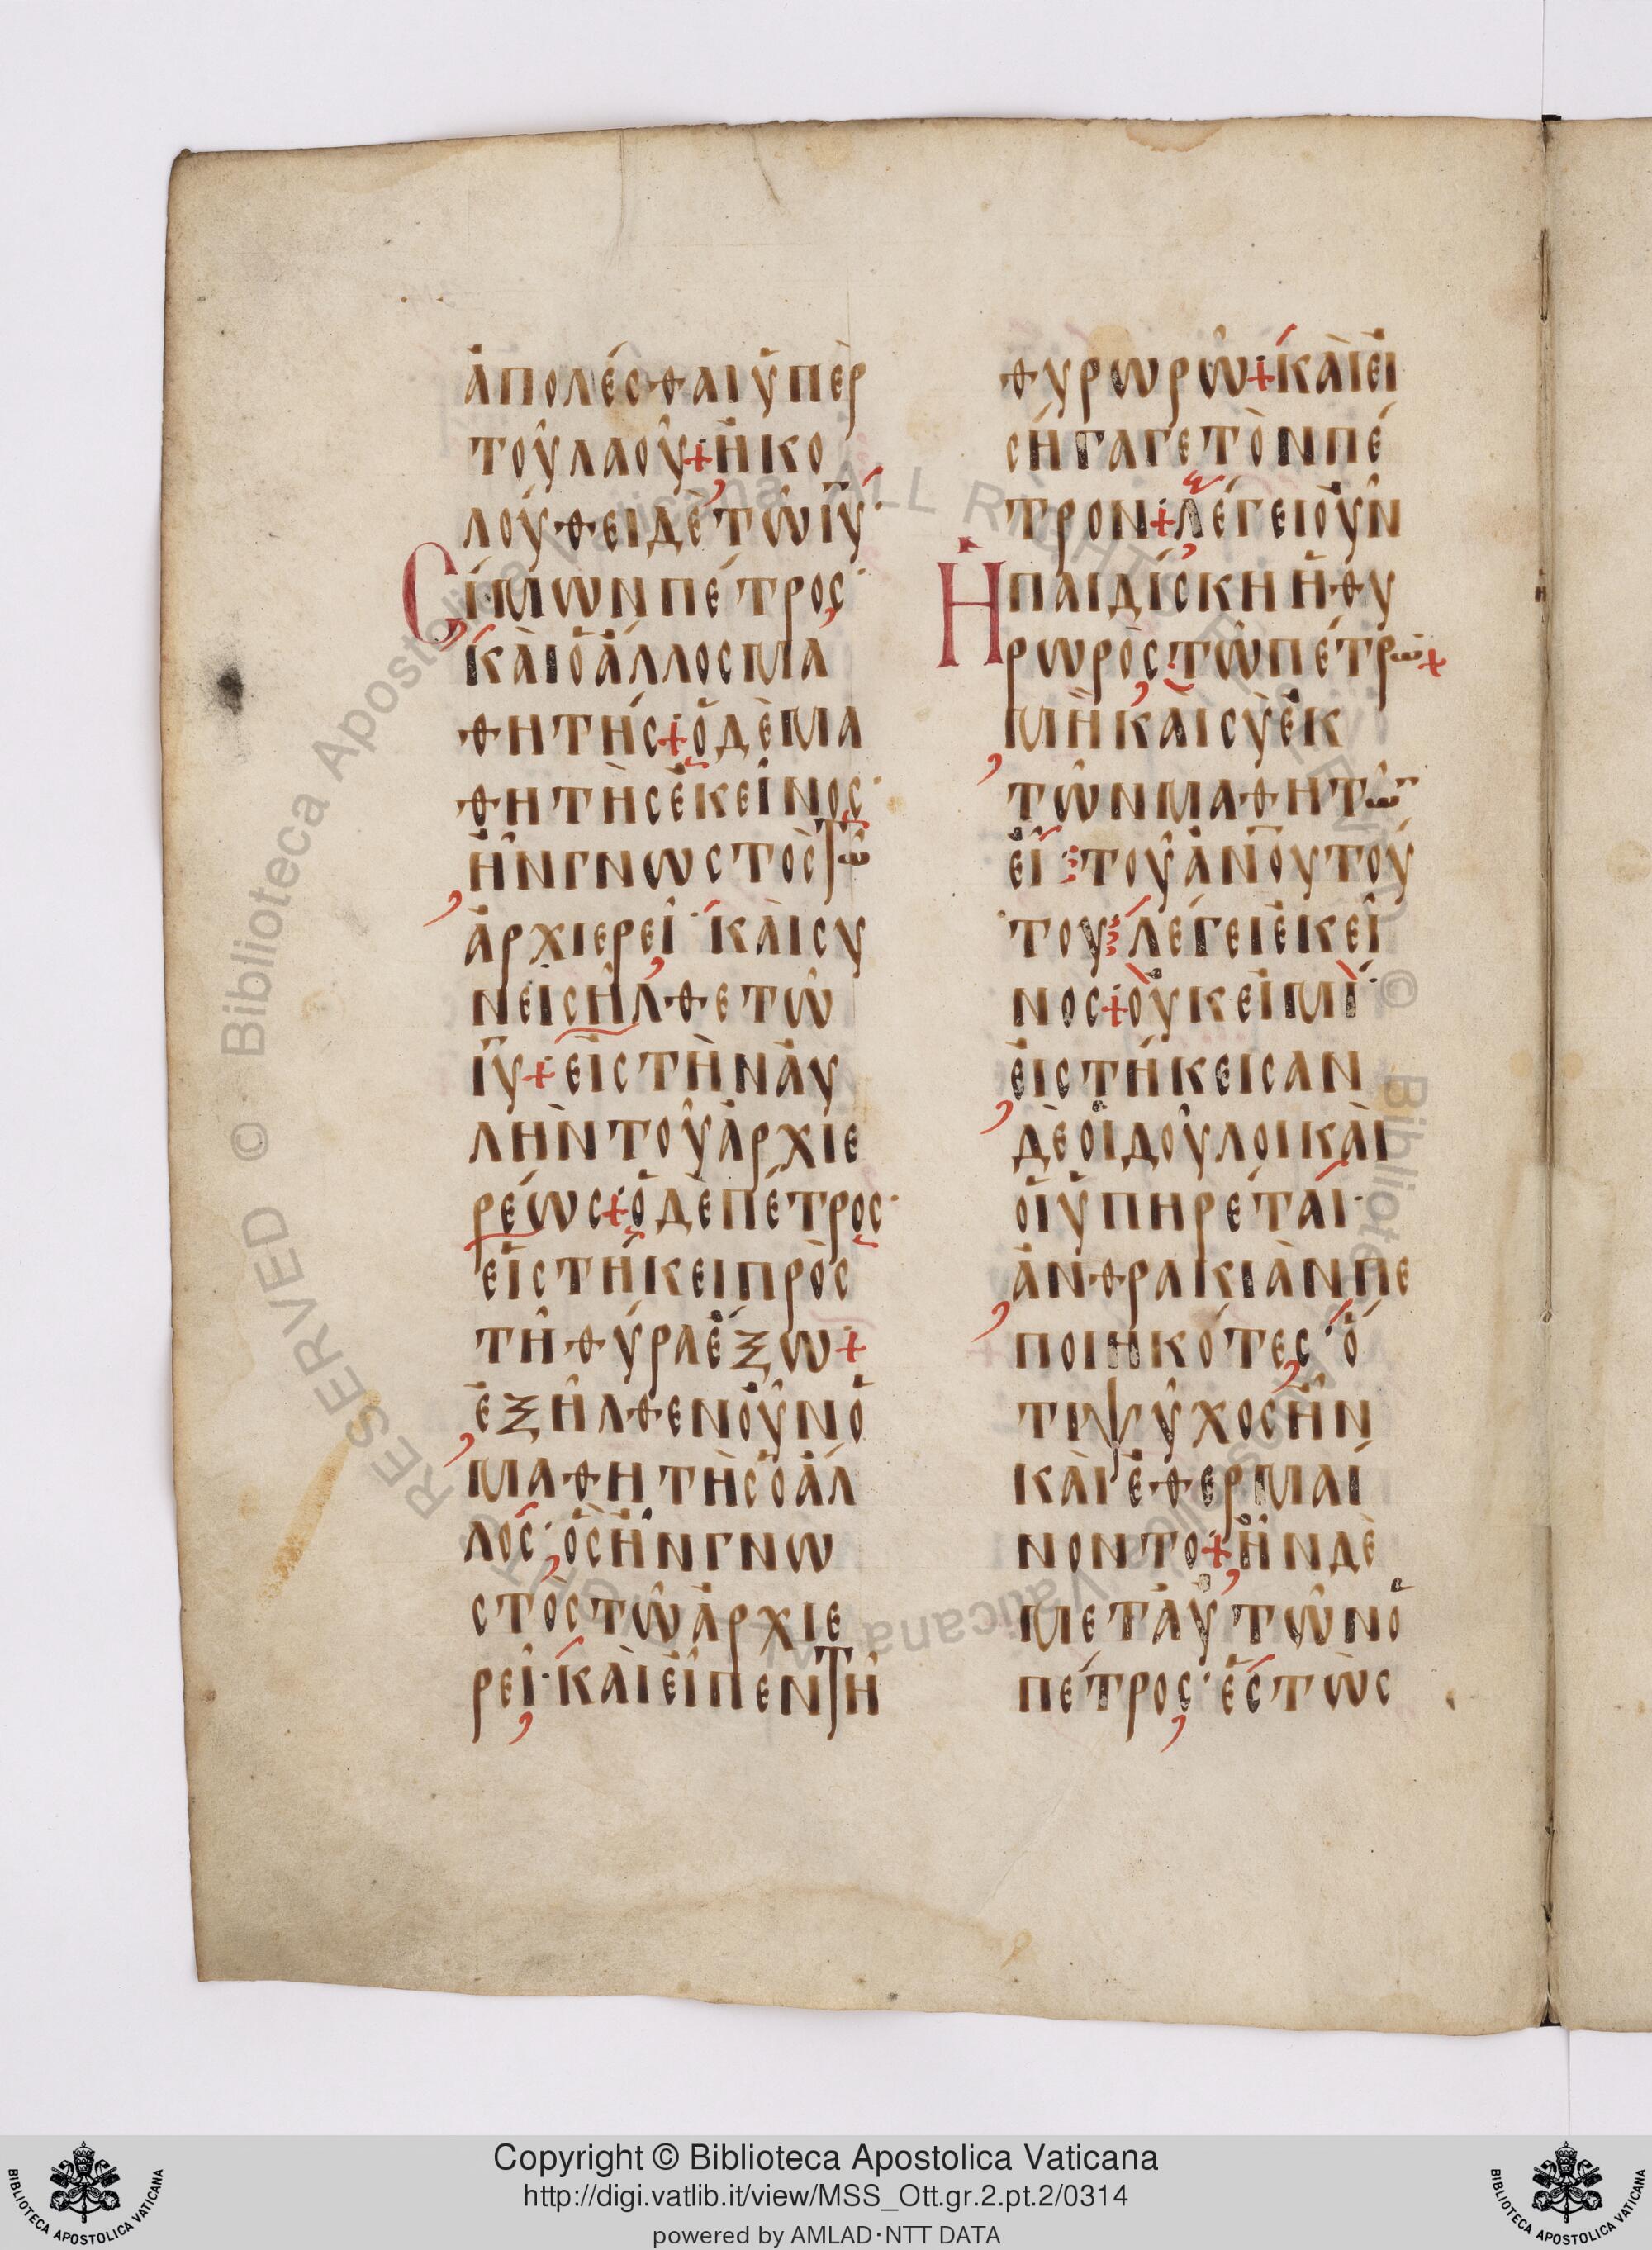 ἀπολέσθαι ὑπὲρ
τοῦ λαοῦ + ἠκο
λούθει δὲ τῶ ἰῦ·
Σίμων πέτρος·
καὶ ὁ ἄλλος μα
θητής + ὁ δὲ μα
θητὴς ἐκεῖνος·
ἦν γνωστὸς τῶ
ἀρχιερεῖ· καὶ συ
νεισῆλθε τῶ
ἰῦ + εἰς τὴν αὐ
λὴν τοῦ ἀρχιε
ρέως + ὁ δὲ πέτρος·
εἱστήκει πρὸς
τῆ θύρα ἔξω +
ἐξῆλθεν οὖν ὁ
μαθητὴς ὁ ἄλ
λος· ὃς ἦν γνω
στὸς τῶ ἀρχιε
ρεῖ· καὶ εἶπεν τῆ
θυρωρῶ + καὶ εἰ
σήγαγε τὸν πέ
τρον + λέγει οὖν
Ἡ παιδίσκη ἡ θυ
ρωρὸς τῶ πέτρω +
μὴ καὶ σὺ ἐκ
τῶν μαθητῶ
εἶ τοῦ ἀνου τού
του λέγει ἐκεῖ
νος + οὐκ εἰμὶ·
εἱστήκεισαν
δὲ οἱ δοῦλοι καὶ
οἱ ὑπηρέται·
ἀνθρακιὰν πε
ποιηκότες· ὅ
τι ψύχος ἦν
καὶ ἐθερμαί
νοντο + ἦν δὲ
μετ᾽ αὐτῶν ὁ
πέτρος· ἑστὼς
Copyright © Biblioteca Apostolica Vaticana
http://digi.vatlib.it/view/MSS_Ott.gr.2.pt.2/0314
powered by AMLAD·NTT DATA
BIBLIOTECA APOSTOLICA VATICANA
BIBLIOTECA APOSTOLICA VATICANA
© Biblioteca Apostolica Vaticana ALL RIGHTS RESERVED
© Biblioteca Apostolica Vaticana ALL RIGHTS RESERVED